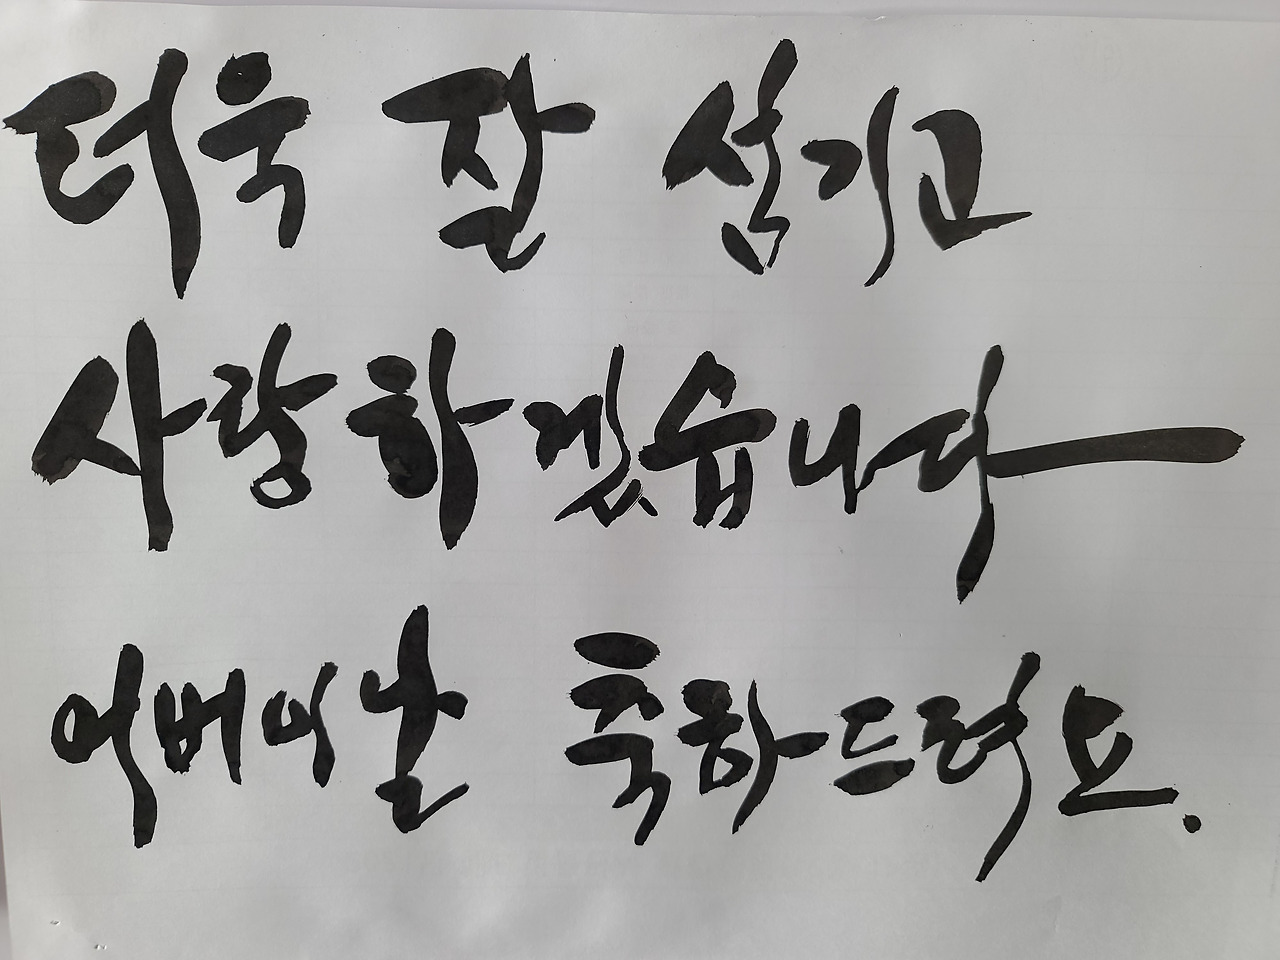 더욱 잘 섬기고
사랑하겠습니다
어버이날 축하드려요.